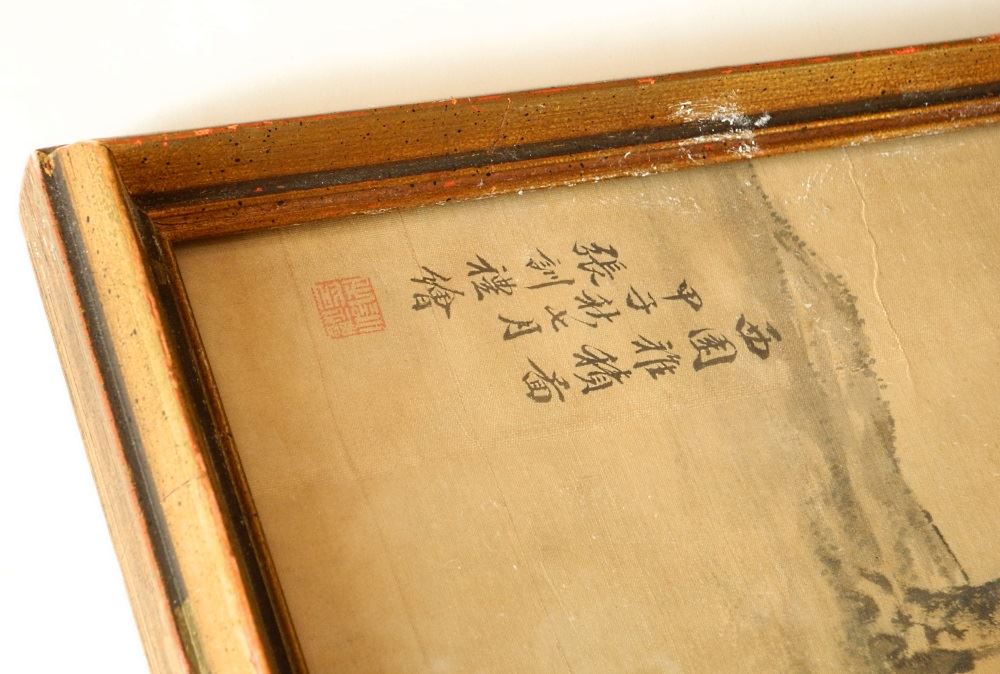 西園雅積圖
甲子秋七月
張訓禮繪